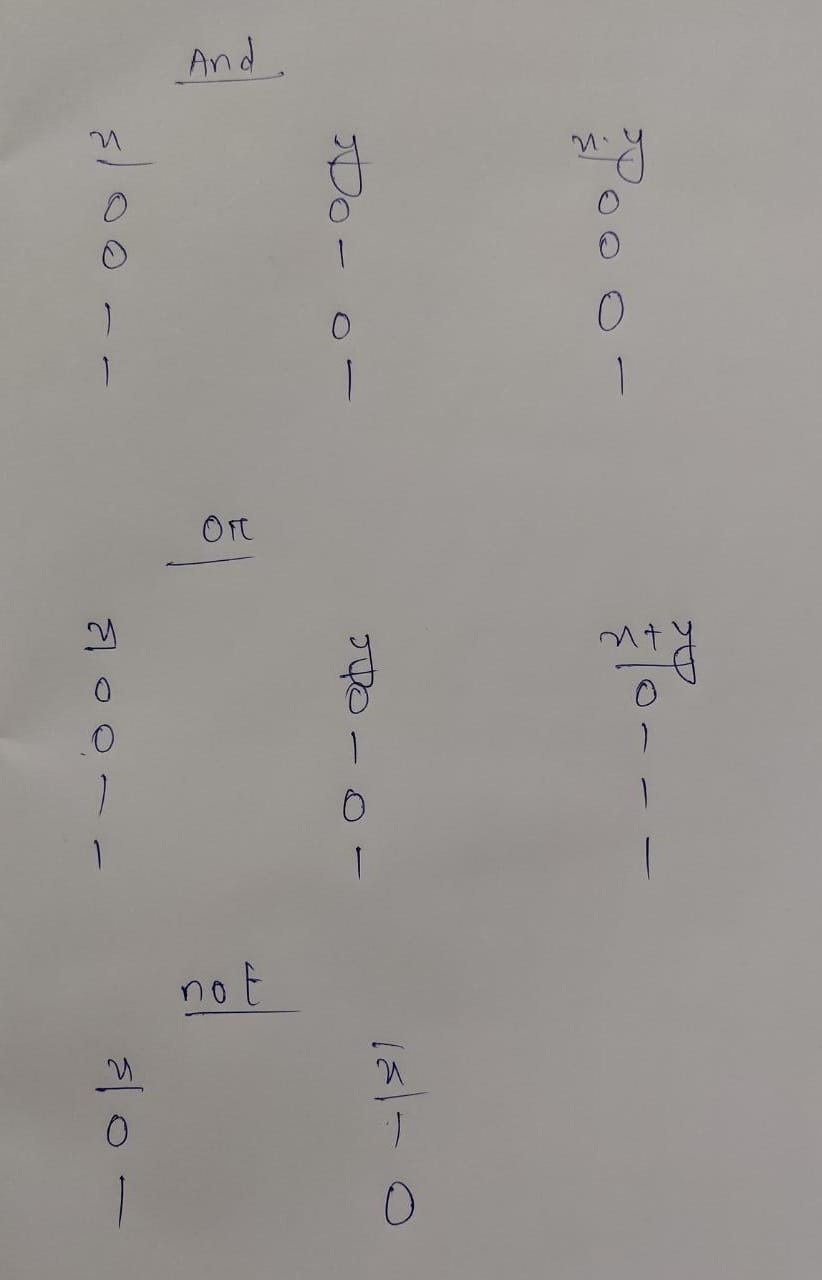 And
x y x.y
0 0 0
0 1 0
1 0 0
1 1 1
or
x y x+y
0 0 0
0 1 1
1 0 1
1 1 1
not
x x̄
0 1
1 0